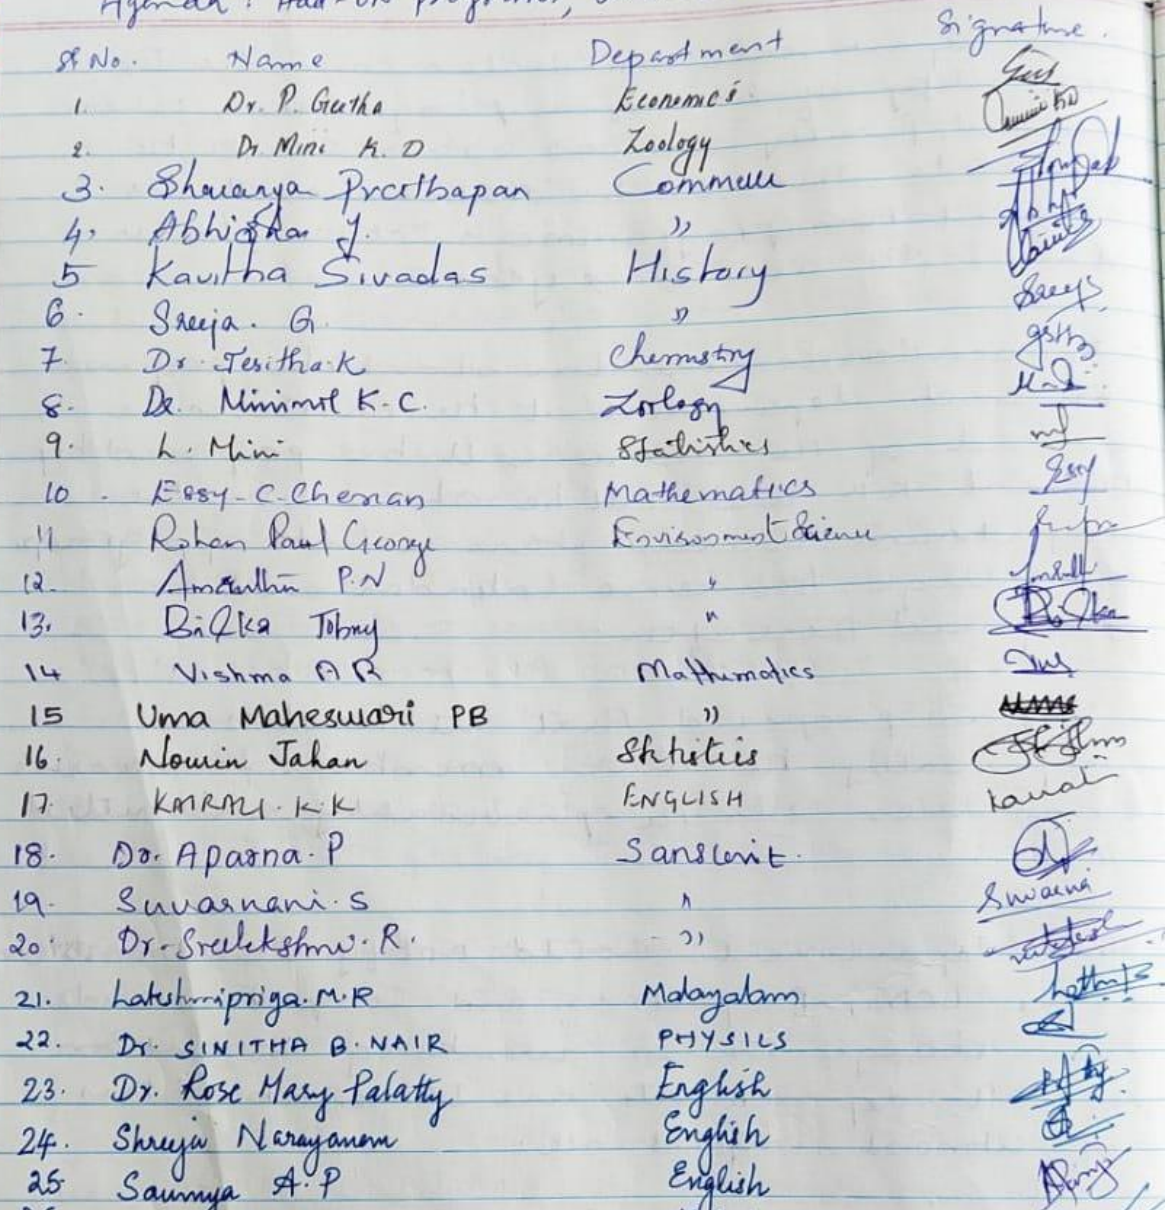 Agenda : Add-on programs,
Sl No. Name Department Signature.
1. Dr. P. Geetha Economics
2. Dr Mini K. D Zoology
3. Sharanya Prathapan Commerce
4. Abhigha Y. "
5 Kavitha Sivadas History
6. Sreeja. G. "
7. Dr. Jesitha.K Chemistry
8. Dr. Minimol K.C. Zoology
9. L. Mini Statistics
10. Essy-C-Cherian Mathematics
11 Rohan Paul George Environment Science
12. P.N "
13. Tobny "
14 Vishma A R Mathematics
15 Uma Maheswari PB "
16. Nowrin Jahan Sttistics
17. KAIRALI. K.K ENGLISH Kairali
18. Dr. Aparna. P Sanskrit.
19. Suvarnani. S " Suvarna
20. Dr. Sreelekshmi. R. "
21. Lakshmipriya. M.R Malayalam
22. Dr. SINITHA B. NAIR PHYSICS
23. Dr. Rose Mary Palatty English
24. Shreeja Narayanan English
25. Saumya A.P English